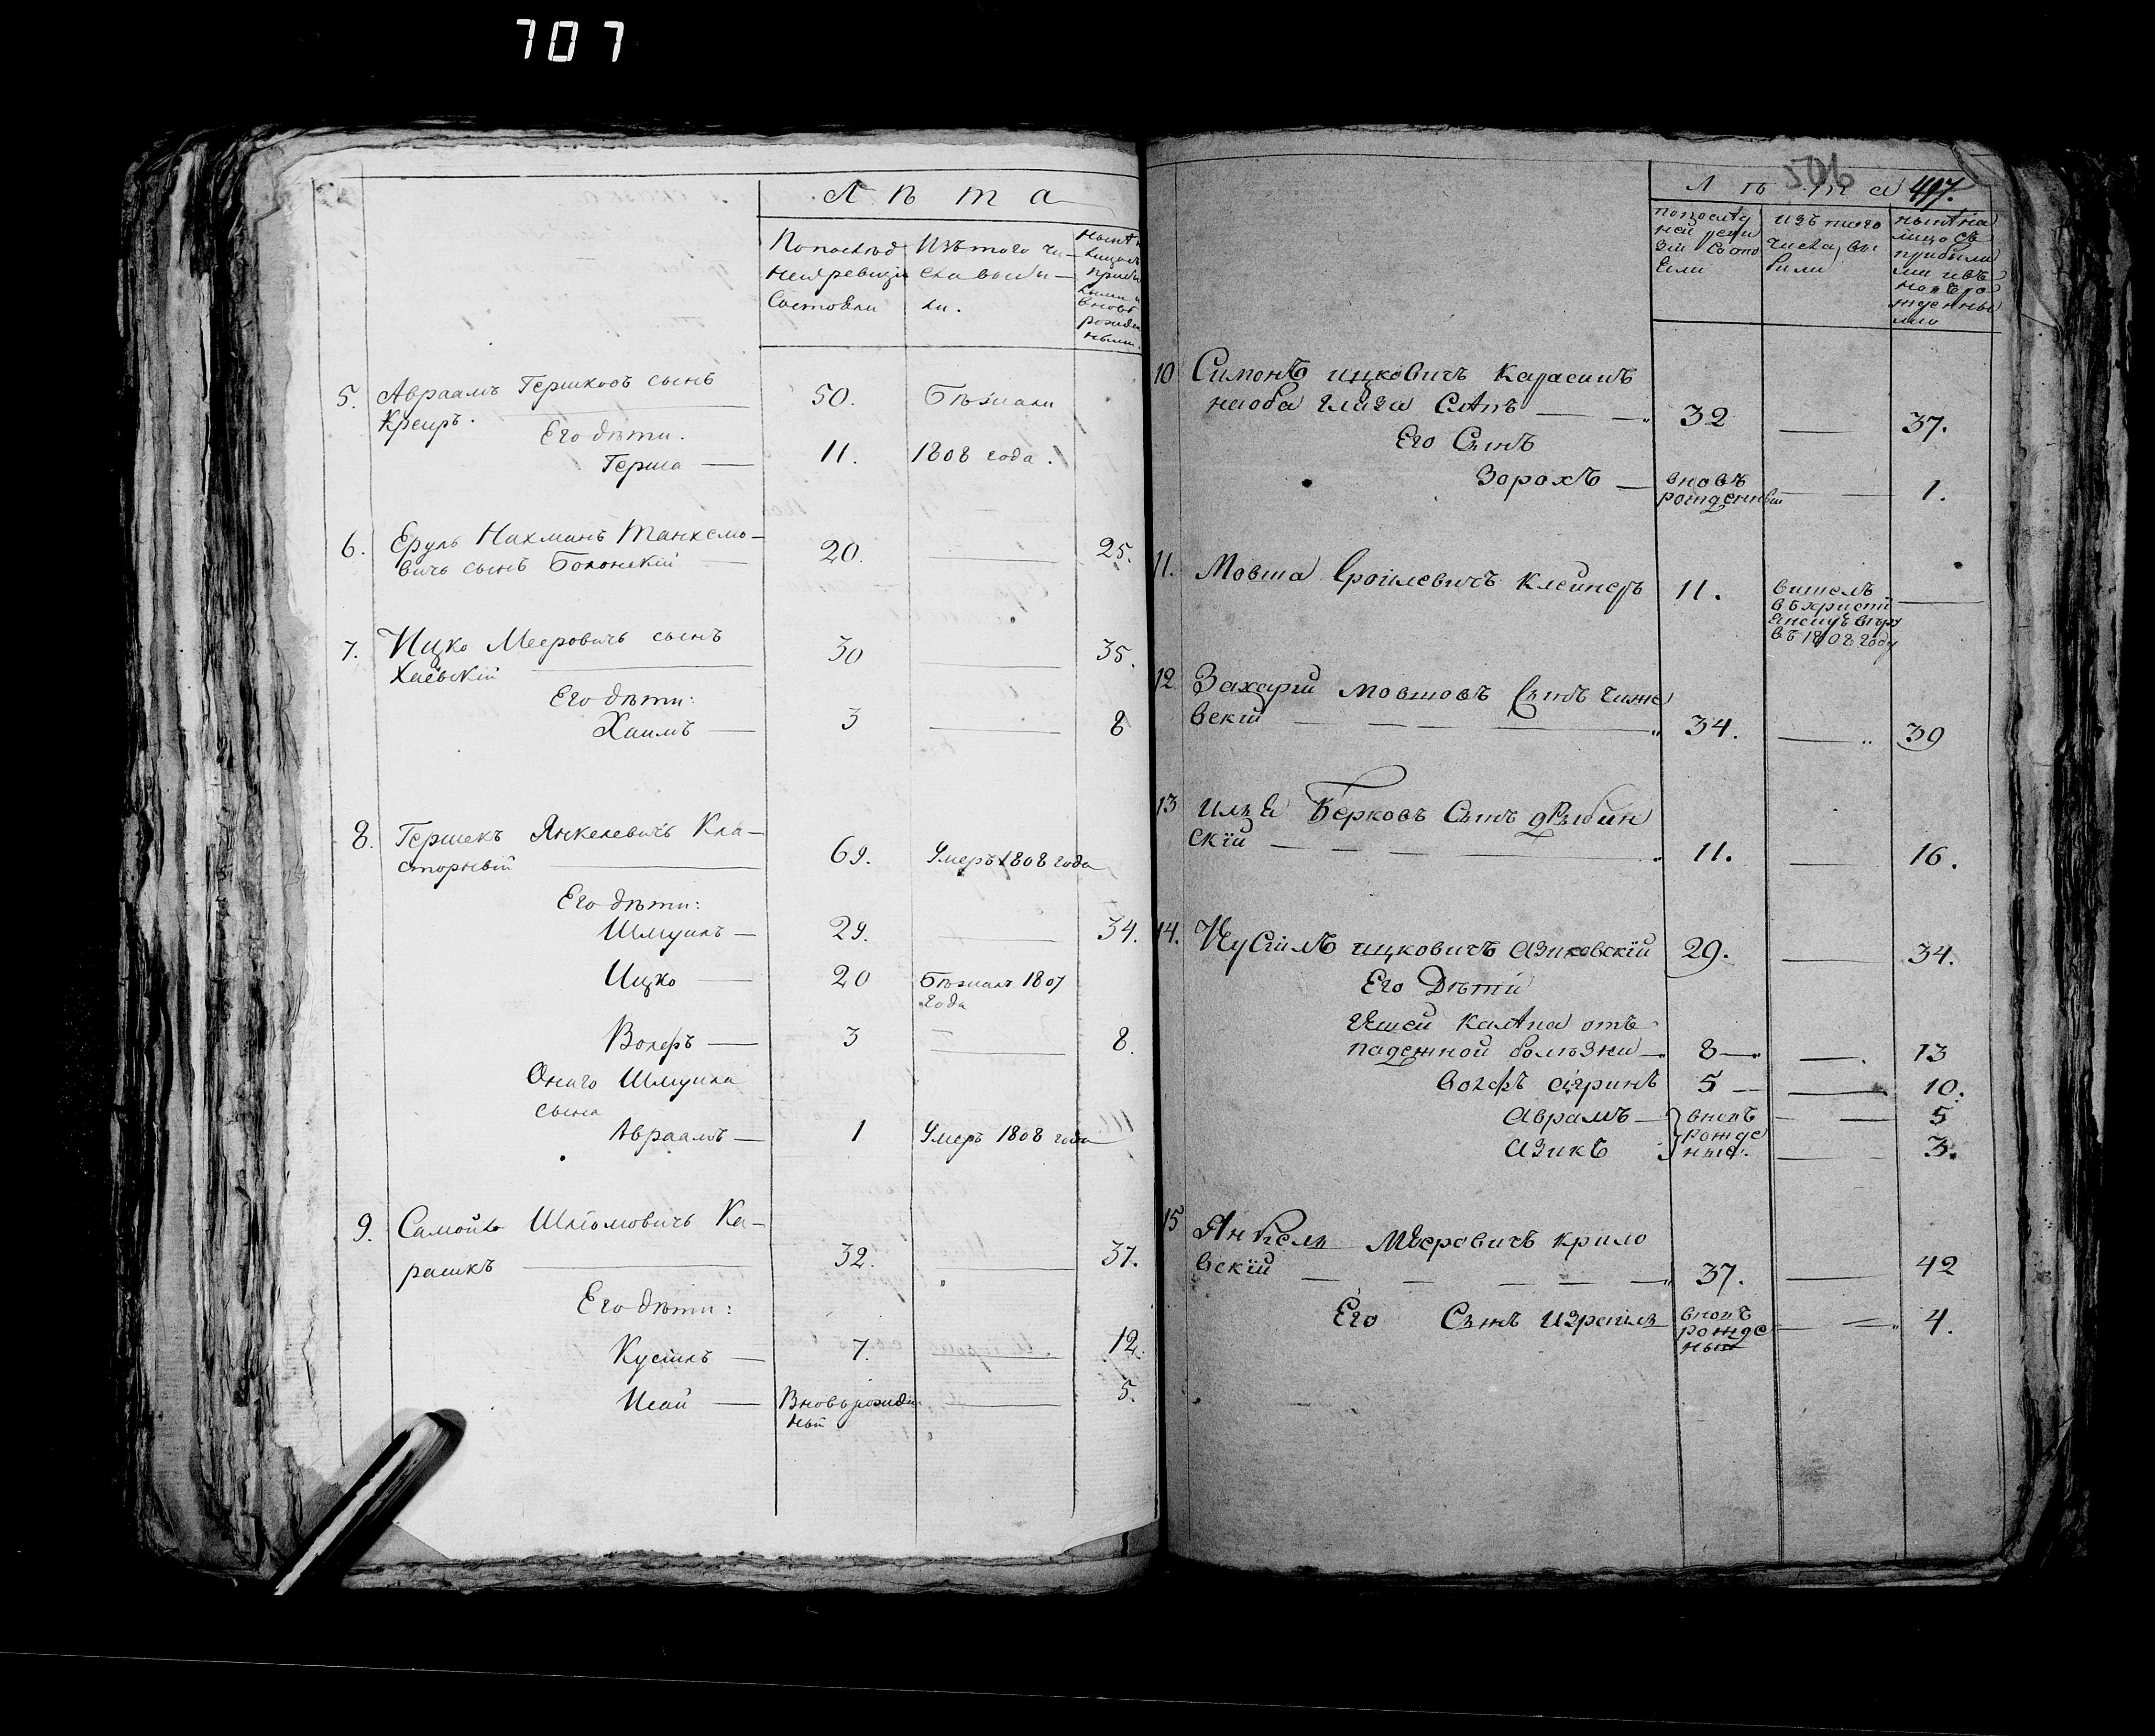 707
Лѣта
По послѣд
ней ревизіи
состояли
Изъ того чи-
сла выбы-
ли.
5. Авраамъ Гершковъ сынъ
Креиръ. 50. Бѣжали
Его дѣти.
Герша — 11. 1808 года.
6. Еруль Нахманъ Танхемо-
вичъ сынъ Болонскій — 20. — 25.
7. Ицко Мееровичъ сынъ
Хаевскій — 30 — 35.
Его дѣти:
Хаимъ — 3 — 8
8. Гершекъ Янкелевичъ Кла-
сторный — 69. Умеръ 1808 года
Его дѣти:
Шмуилъ — 29. — 34.
Ицко — 20 Бѣжалъ 1807
года
Волфъ — 3 — 8.
Онаго Шмуила
сына
Авраамъ — 1 Умеръ 1808 года
9. Самойло Шліомовичъ Ка-
расикъ — 32. — 37.
Его дѣти:
Кусилъ — 7. — 12.
Исай — Вновь рожден
ный — 5.
506
Лѣта 497.
по послѣд
ней реви
зіи состо
яли
изъ того
числа вы
были
нынѣ на
лицо съ
прибыли
ми и въ
новь ро
жденны
ми
10 Симонъ ицковичъ Карасикъ
на оба глаза слѣпъ — 32 — 37.
Его Сынъ
Зорохъ — вновъ
рожденный — 1.
11. Мовша Сроилевичъ Клейнеръ 11. вышелъ
въ христі
анскую вѣру
въ 1808 году —
12 Захарій Мовшовъ Сынъ Чиже
вскій — 34. — 39
13 Берковъ Сынъ
скій — 11. — 16.
14. Кусіилъ ицковичъ Азиковскій 29. — 34.
Его Дѣти
калѣка отъ
падежной болѣзни — 8 — 13
Волфъ 5 — 10.
Аврамъ — внопъ — 5
рожде
Азикъ ные. — 3.
15 Янкель Мееровичъ крило
вскій — 37. — 42
Его Сынъ Израиль внопъ
рожде
ный — 4.